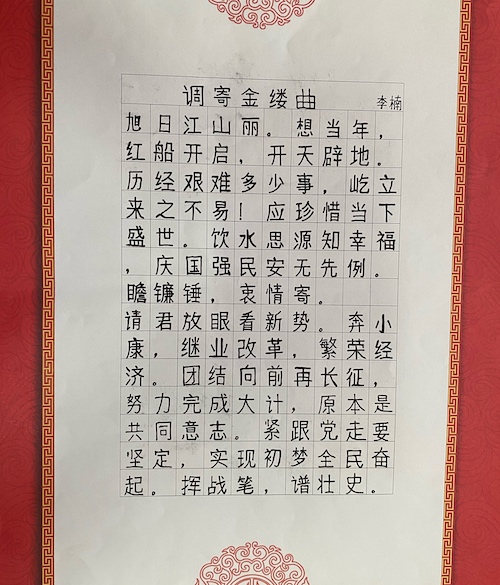 调寄金缕曲 李楠
旭日江山丽。想当年，
红船开启，开天辟地。
历经艰难多少事，屹立
来之不易！应珍惜当下
盛世。饮水思源知幸福
，庆国强民安无先例。
瞻镰锤，衷情寄。
请君放眼看新势。奔小
康，继业改革，繁荣经
济。团结向前再长征，
努力完成大计，原本是
共同意志。紧跟党走要
坚定，实现初梦全民奋
起。挥战笔，谱壮史。